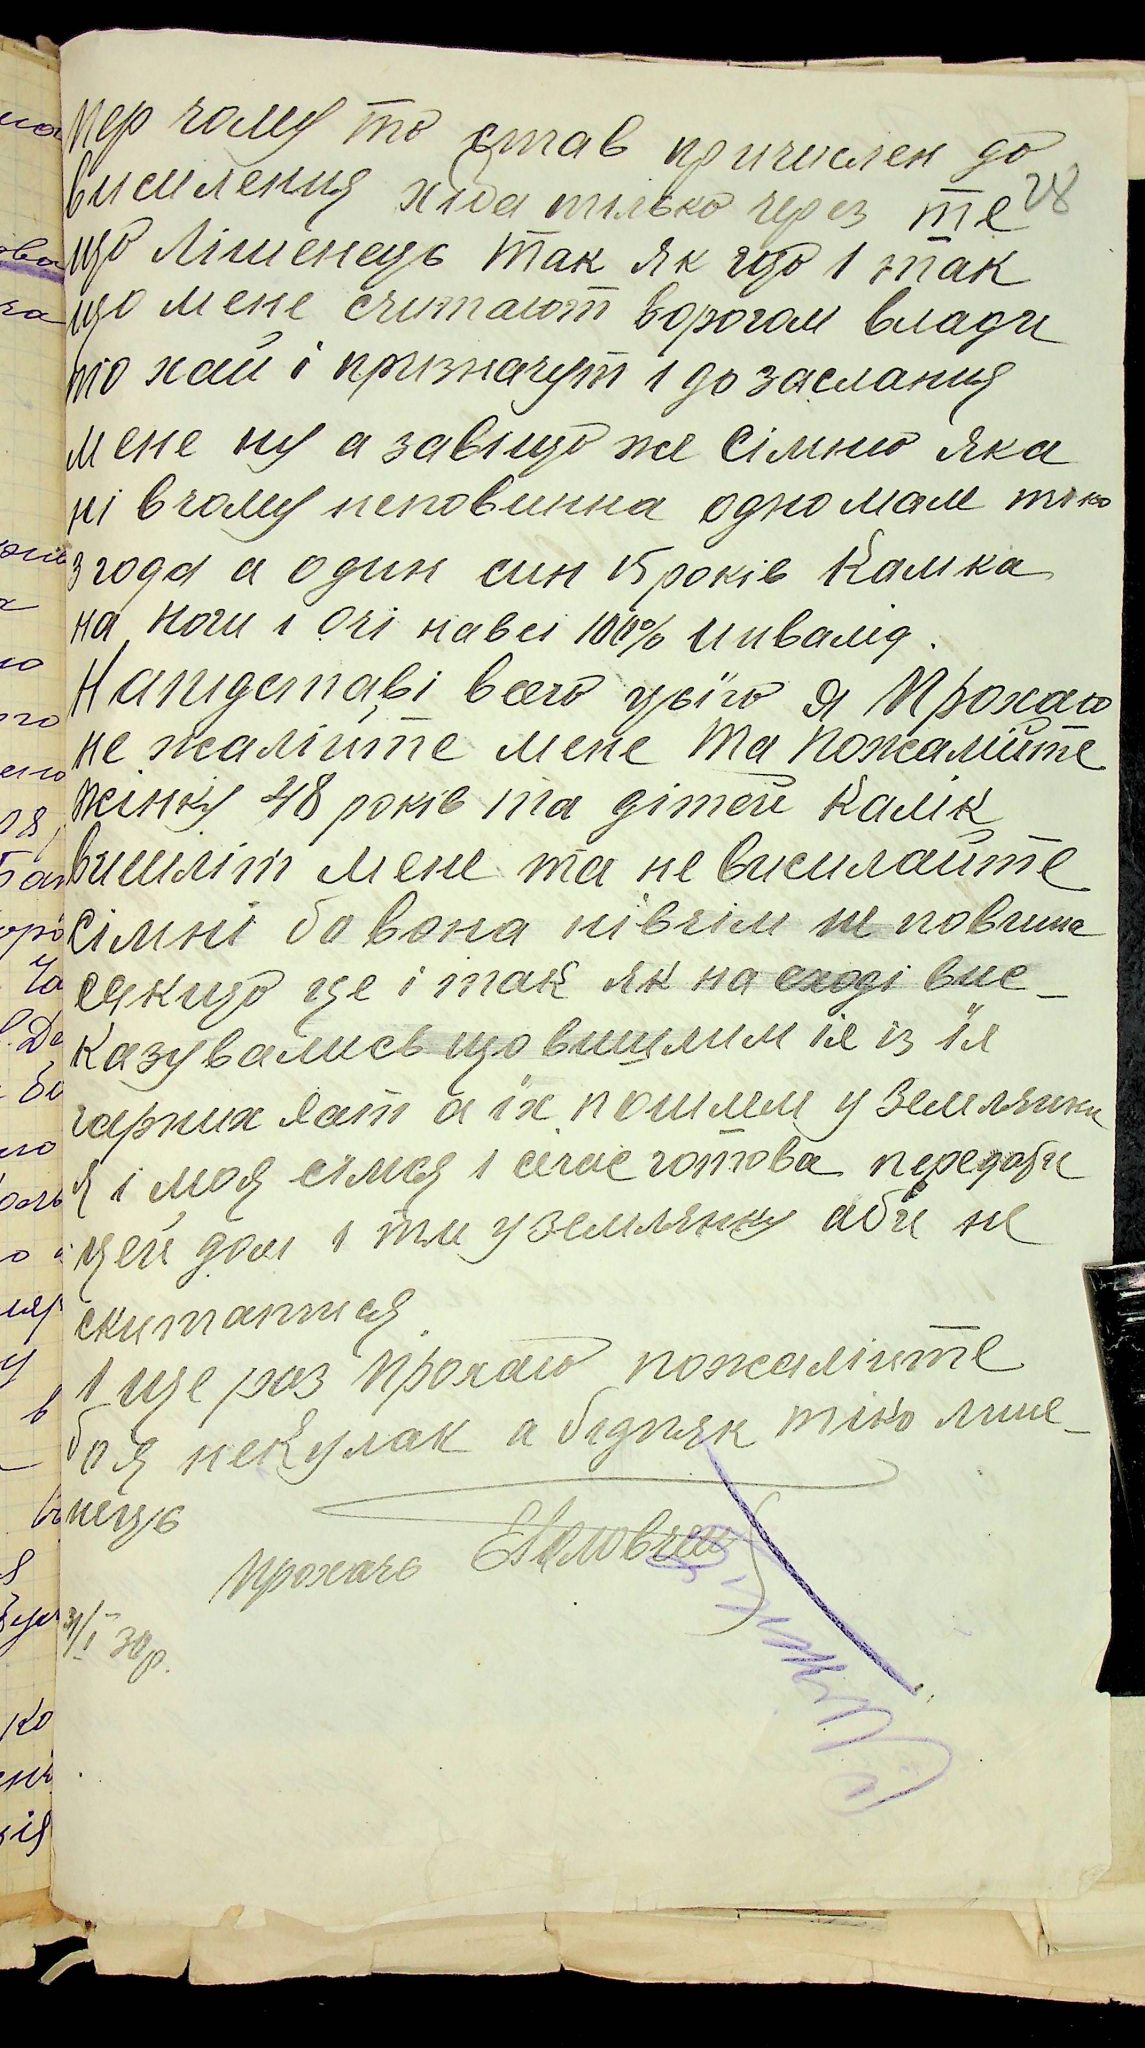 пер чому то став причислен до
28
висиления хиба тілько через те
що лішенець так як що і так
що мене считают ворогом влади
то хай і призначут і до заслания
мене ну а завіщо же сімню яка
ні в чому неповинна одно мале тіко
3 года а один син 15 років Каліка
на ноги і очі навсі 100% инвалід.
На підставі всего цього я Прохаю
не жалійте мене та пожалійте
жінку 48 років та дітей Калік
вишліт мене та не висилайте
сімні бо вона нівчім не повинна
якщо це і так як на сході вис-
казувались що вишлим іх із їх
гарних хат а їх пошлем у Землянки
я і моя сімья і січас готова передати
цей дом і йти у землянку аби не
скитатися
І ще раз Прохаю пожалійте
бо я не Кулак а бідняк тіко лише-
нець
Прохачь
31/I 30р.